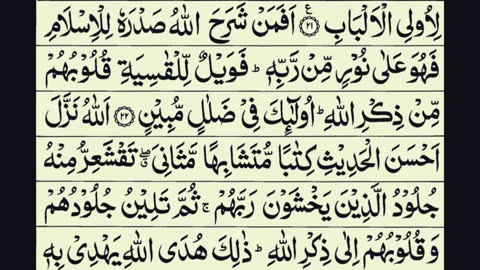 لِاُولِی الْاَلْبَابِ ﴿۲۱﴾ اَفَمَنْ شَرَحَ اللّٰهُ صَدْرَهٗ لِلْاِسْلَامِ
فَهُوَ عَلٰی نُوْرٍ مِّنْ رَّبِّهٖ ؕ فَوَیْلٌ لِّلْقٰسِیَةِ قُلُوْبُهُمْ
مِّنْ ذِكْرِ اللّٰهِ ؕ اُولٰٓئِكَ فِیْ ضَلٰلٍ مُّبِیْنٍ ﴿۲۲﴾ اَللّٰهُ نَزَّلَ
اَحْسَنَ الْحَدِیْثِ كِتٰبًا مُّتَشَابِهًا مَّثَانِیَ ۖ تَقْشَعِرُّ مِنْهُ
جُلُوْدُ الَّذِیْنَ یَخْشَوْنَ رَبَّهُمْ ۚ ثُمَّ تَلِیْنُ جُلُوْدُهُمْ
وَ قُلُوْبُهُمْ اِلٰی ذِكْرِ اللّٰهِ ؕ ذٰلِكَ هُدَی اللّٰهِ یَهْدِیْ بِهٖ